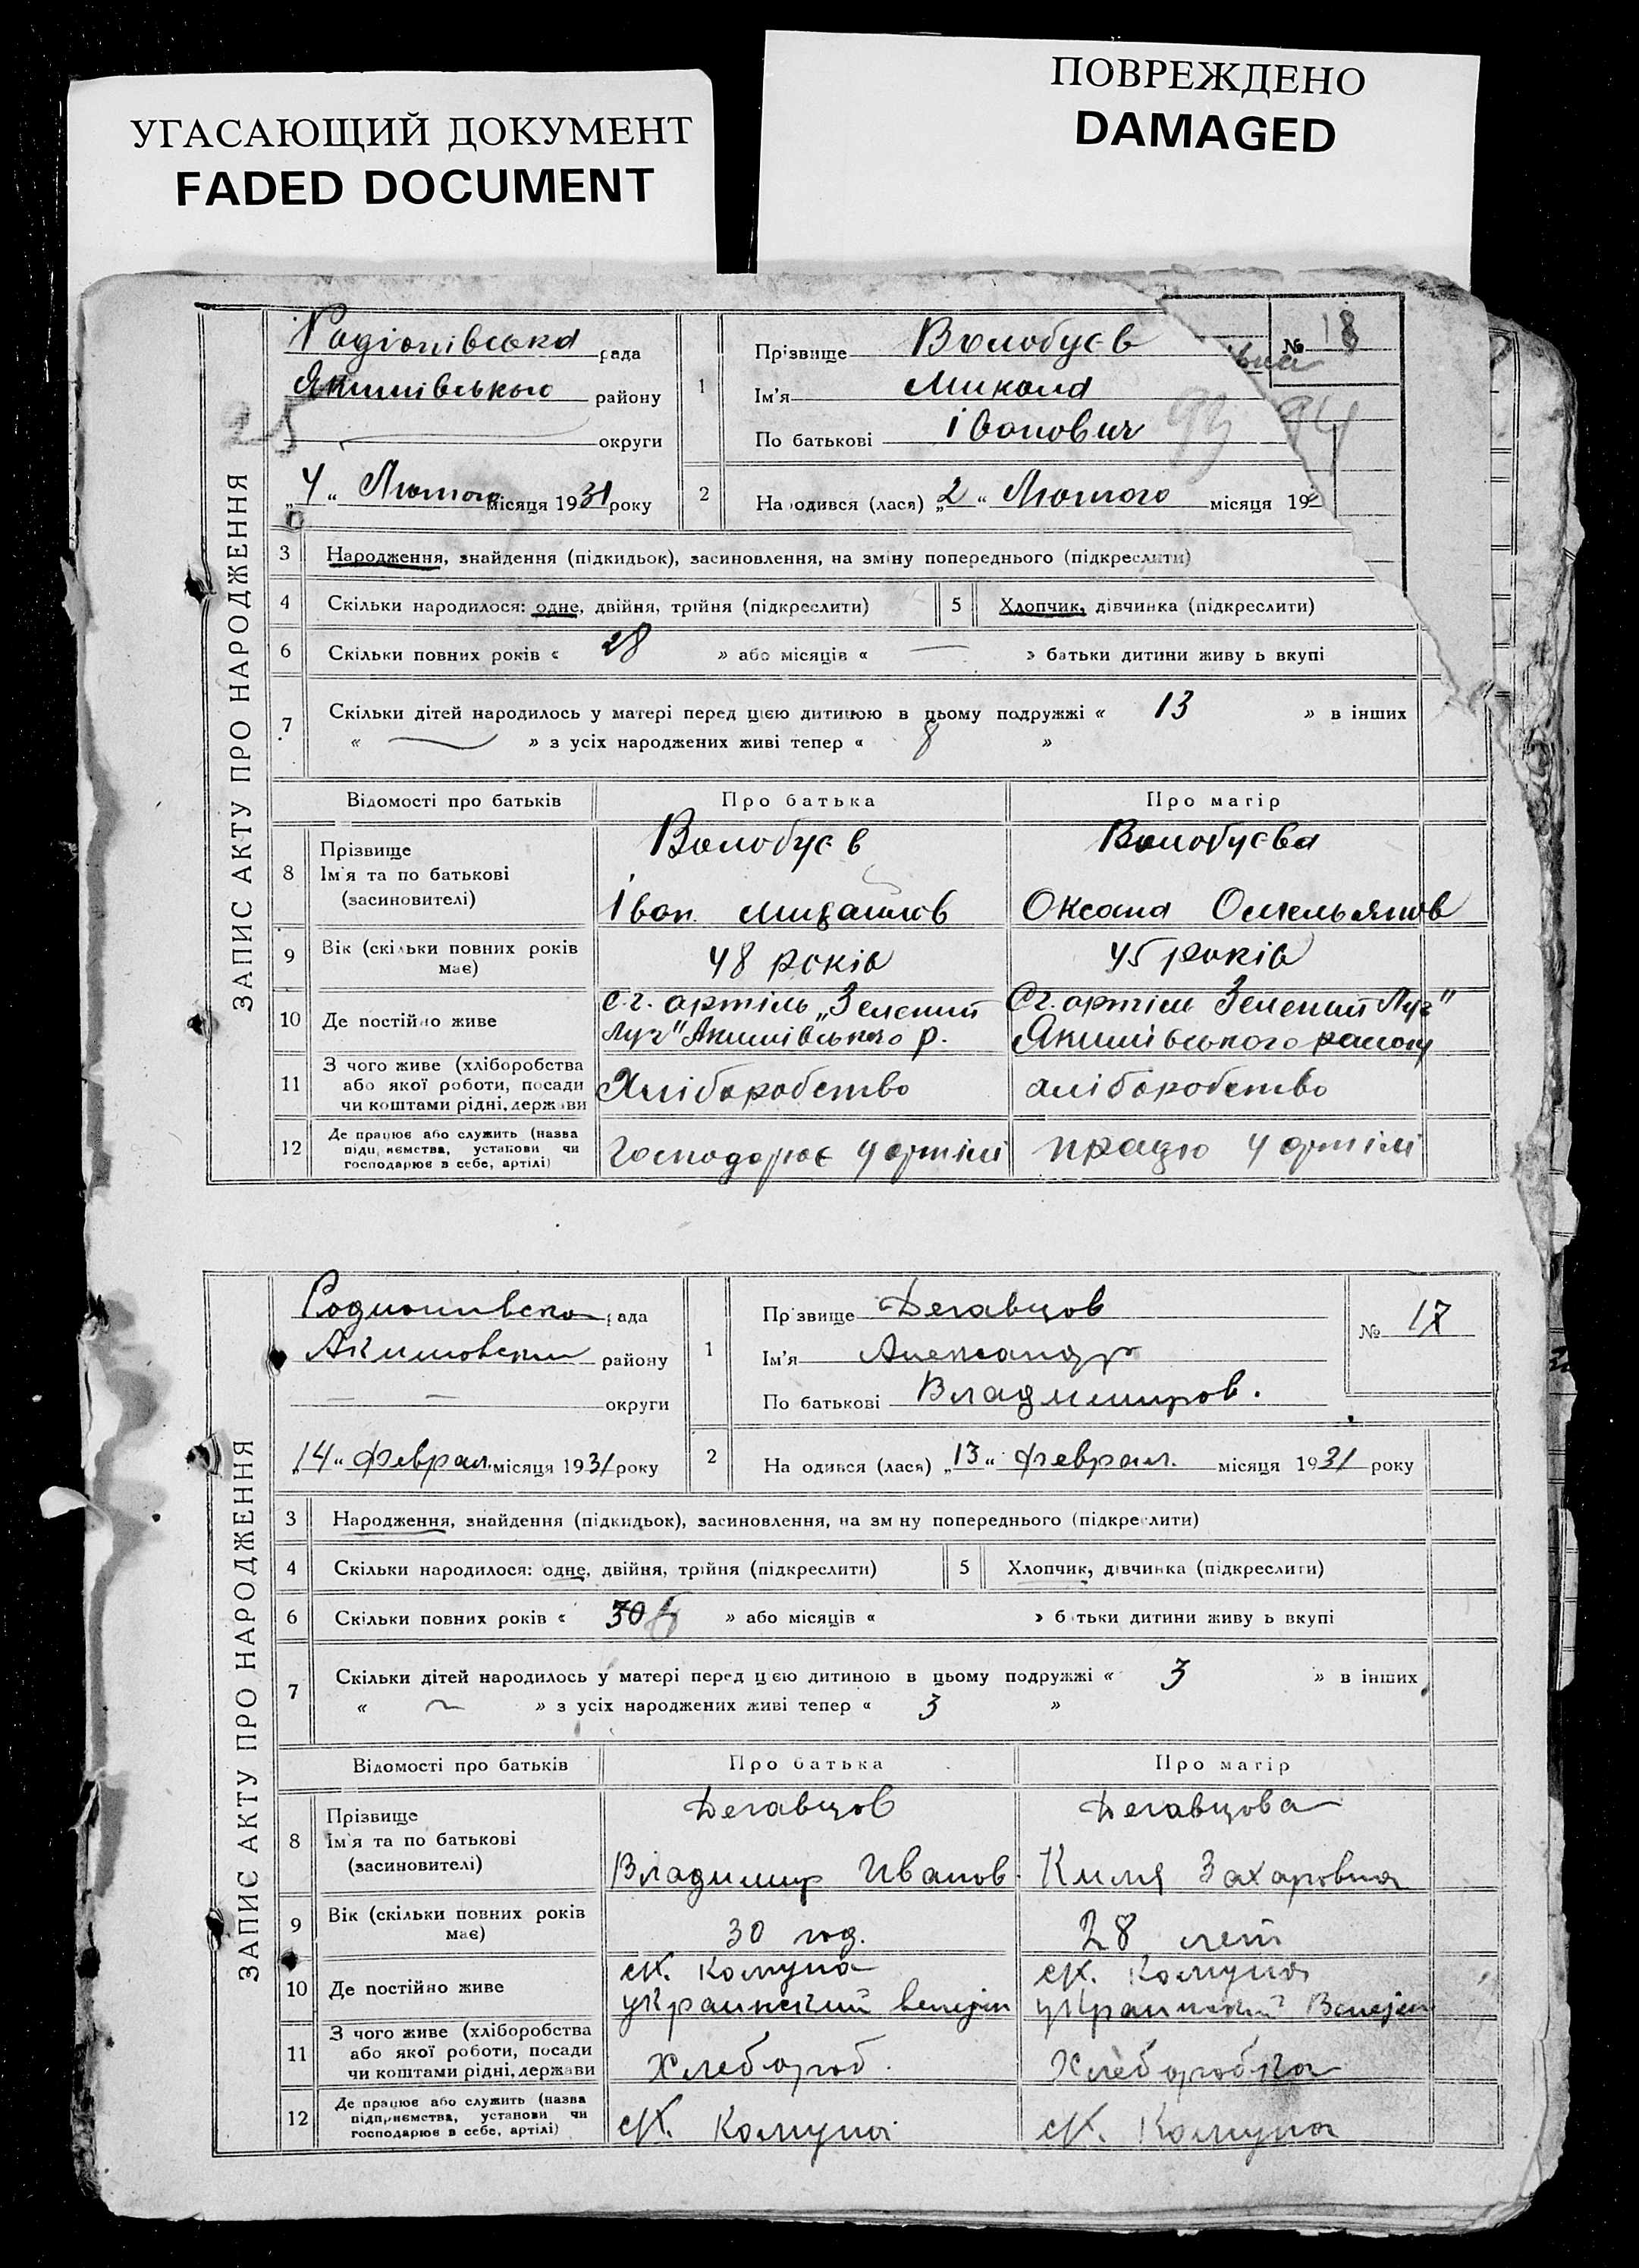 УГАСАЮЩИЙ ДОКУМЕНТ
FADED DOCUMENT
ПОВРЕЖДЕНО
DAMAGED
ЗАПИС АКТУ ПРО НАРОДЖЕННЯ
Радіонівська рада
Якимівського району
округи
„4“ Лютого місяця 1931 року
25
1
Прізвище Волобуєв
Ім'я Микола
По батькові Іванович
№ 18
93 94
2 На одився (лася) „2“ Лютого місяця 19
3 Народження, знайдення (підкидьок), засиновлення, на зміну попереднього (підкреслити)
4 Скільки народилося: одне, двійня, трійня (підкреслити) 5 Хлопчик, дівчинка (підкреслити)
6 Скільки повних років « 28 » або місяців « — » батьки дитини живу ь вкупі
7 Скільки дітей народилось у матері перед цією дитиною в цьому подружжі « 13 » в інших
« — » з усіх народжених живі тепер « 8 »
Відомості про батьків Про батька Про матір
8 Прізвище Волобуєв Волобуєва
Ім'я та по батькові
(засиновителі) Іван Михайлов Оксана Омельянов
9 Вік (скільки повних років має) 48 років 45 років
10 Де постійно живе с.г. артіль „Зелений Сг. артіль Зелений Луг"
Луг" Акимівського р. Якимівського району
11 З чого живе (хліборобства
або якої роботи, посади Хліборобство хліборобство
чи коштами рідні, держави
12 Де працює або служить (назва
підприємства, установи чи Господарює у артілі працю у артілі
господарює в себе, артілі)
ЗАПИС АКТУ ПРО НАРОДЖЕННЯ
Родионивска рада
Акимовски району
— — округи
„14“ Феврал. місяця 1931 року
1
Пр звище Дегавцов
Ім'я Александр
По батькові Владимиров.
№ 17
2 На одився (лася) „13“ Феврал. місяця 1931 року
3 Народження, знайдення (підкидьок), засиновлення, на зм ну попереднього (підкреслити)
4 Скільки народилося: одне, двійня, трійня (підкреслити) 5 Хлопчик, дівчинка (підкреслити)
6 Скільки повних років « 30 6 » або місяців « » б тьки дитини живу ь вкупі
7 Скільки дітей народилось у матері перед цією дитиною в цьому подружжі « 3 » в інших
« ~ » з усіх народжених живі тепер « 3 »
Відомості про батьків Про батька Про матір
8 Прізвище Дегавцов Дегавцова
Ім'я та по батькові
(засиновителі) Владимир Иванов. Киля Захаровна
9 Вік (скільки повних років має) 30 год. 28 лет
10 Де постійно живе с/х. Комуна с/х. Комуна
11 З чого живе (хліборобства
або якої роботи, посади Хлебороб. Хлеборобка
чи коштами рідні, держави
12 Де працює або служить (назва
підприємства, установи чи с/х. Комуна с/х. Комуна
господарює в себе, артілі)